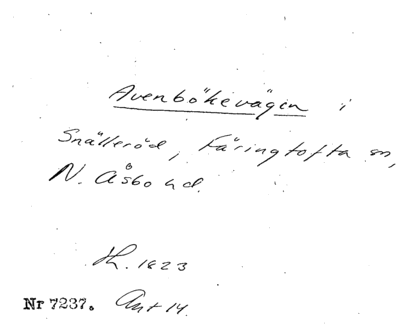 Avenbökevägen i
Snälleröd, Färingtofta sn,
N. Åsbo hd.
1823
Nr 7237. Ant 14.